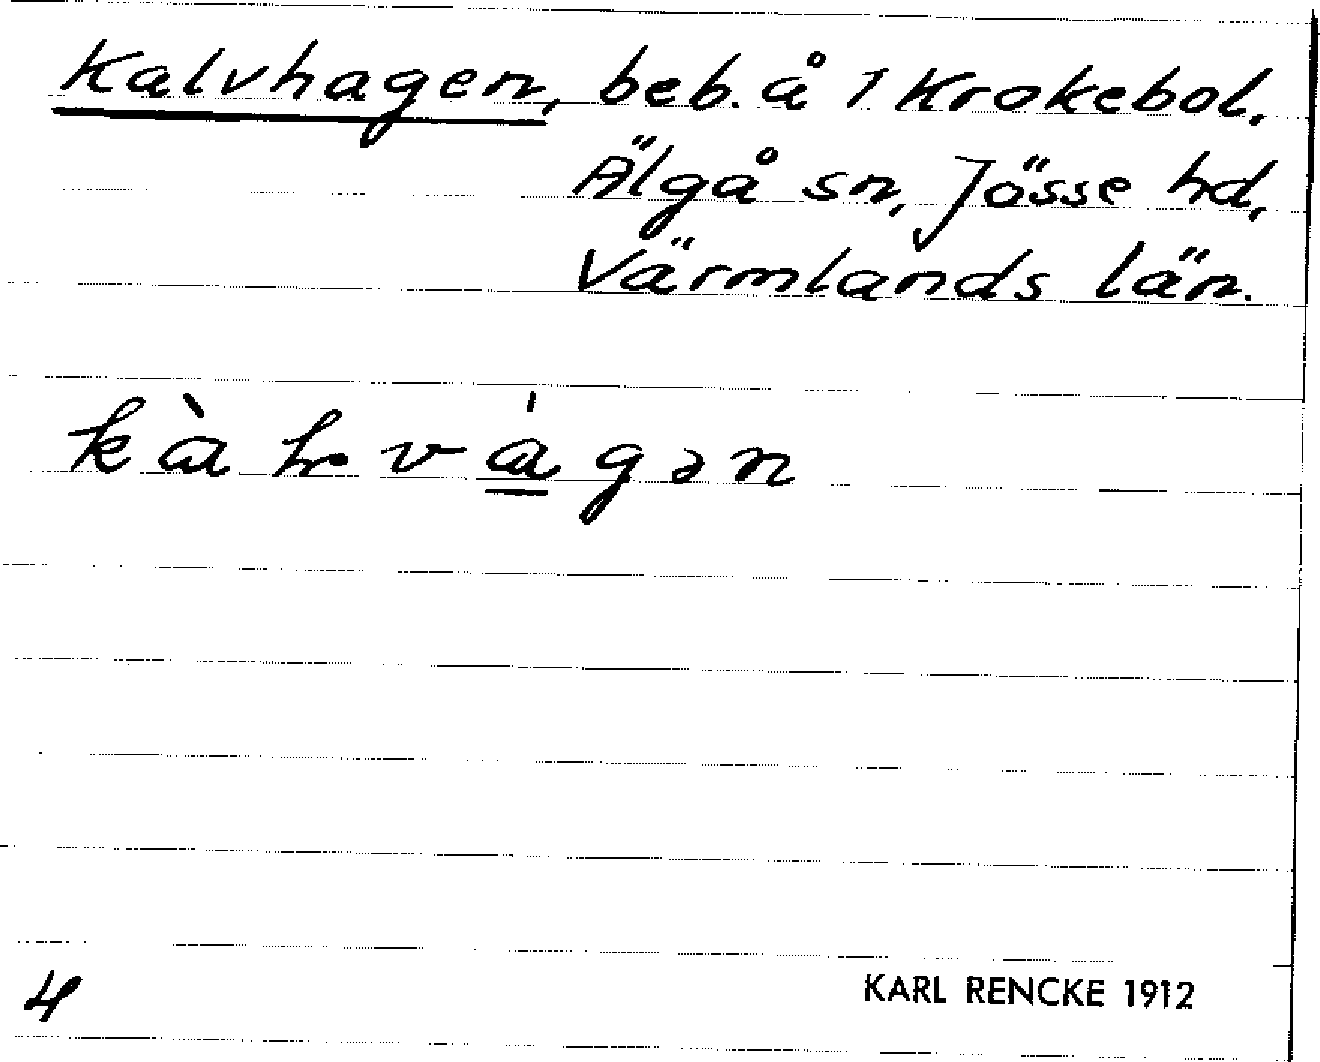 Kalvhagen, beb. å 1 Krokebol,
Älgå sn, Jösse hd,
Värmlands län.
4
KARL RENCKE 1912